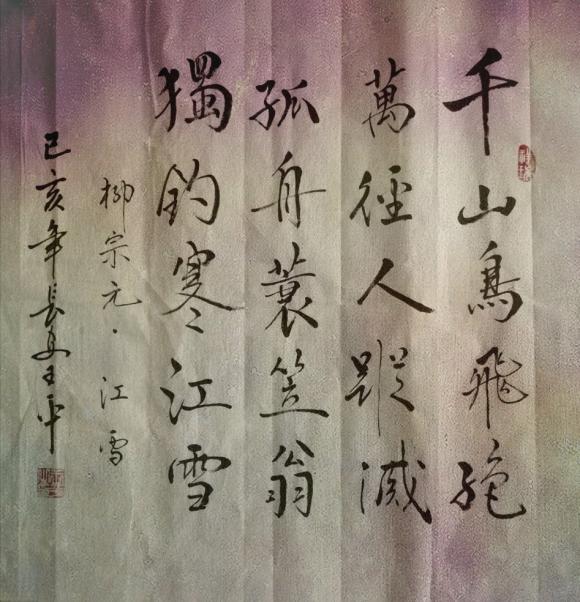 千山鳥飛絕
萬徑人蹤滅
孤舟蓑笠翁
獨釣寒江雪
柳宗元·江雪
己亥年長夏王平